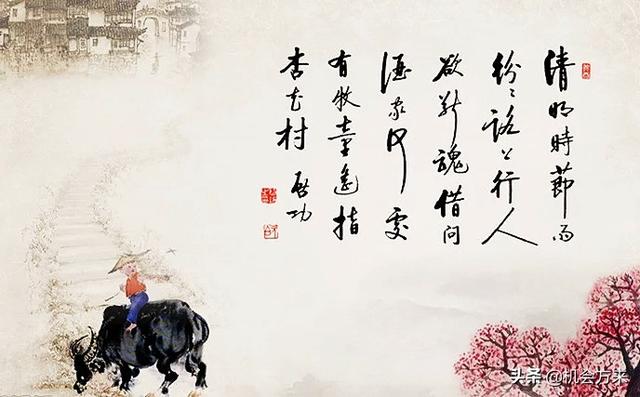 清明時節雨
紛々路上行人
欲斷魂借問
酒家何處
有牧童遙指
杏花村 启功
头条 @机会方来